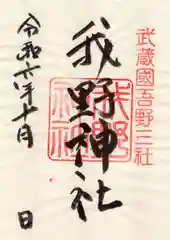 武蔵國吾野三社
我野神社
令和六年十月 日